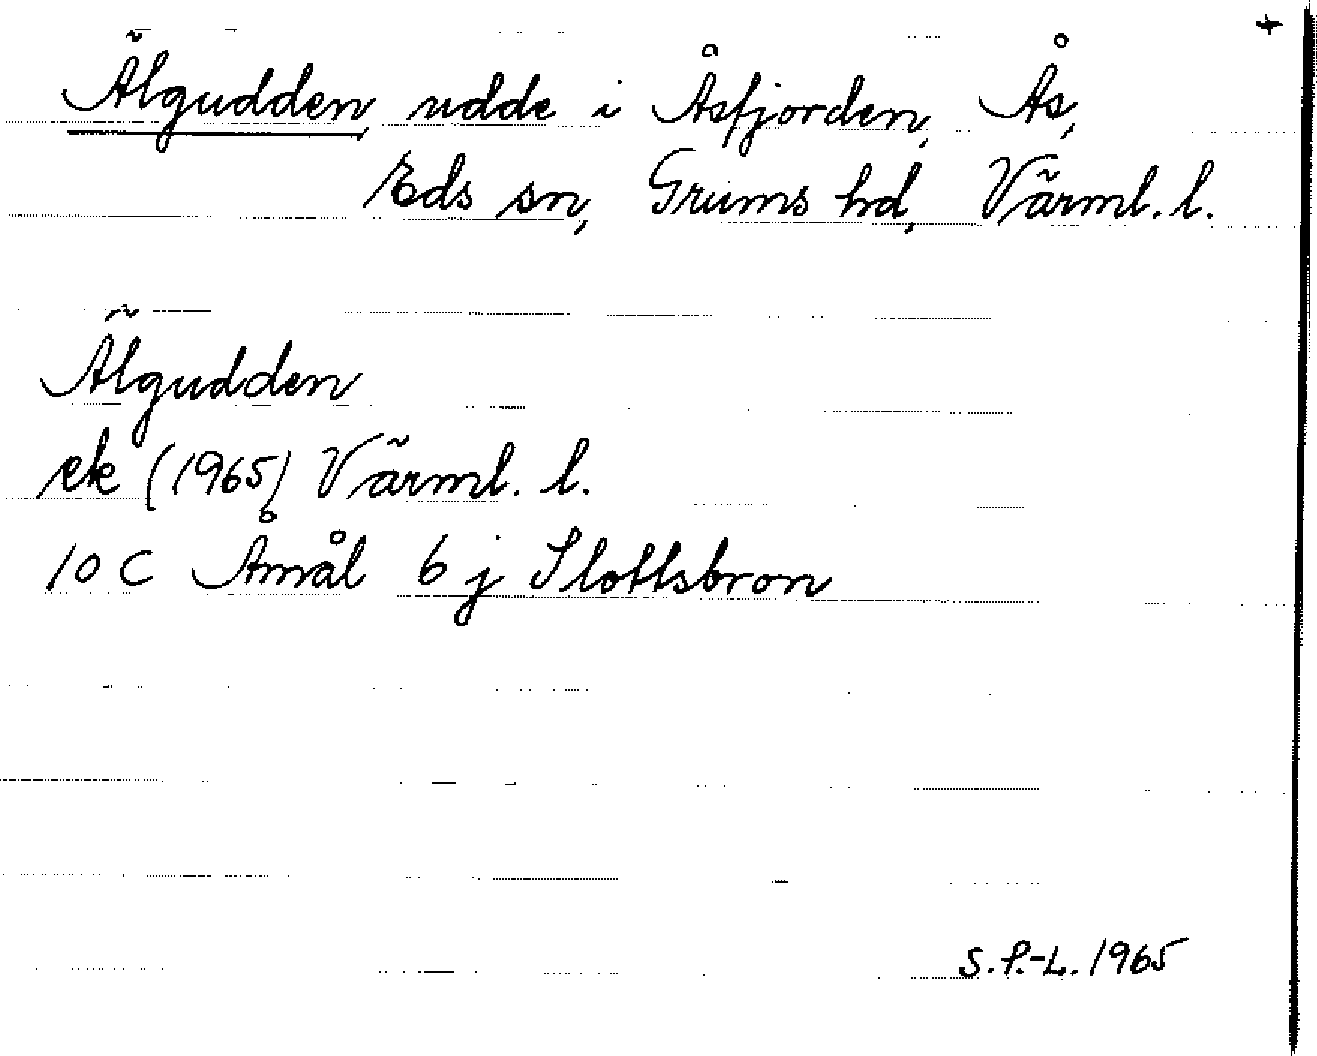 +
Älgudden, udde i Åsfjorden, Ås,
Eds sn, Grums hd, Värml. l.
Älgudden
ek (1965) Värml. l.
10 C Åmål 6 j Slottsbron
S. P.-L. 1965